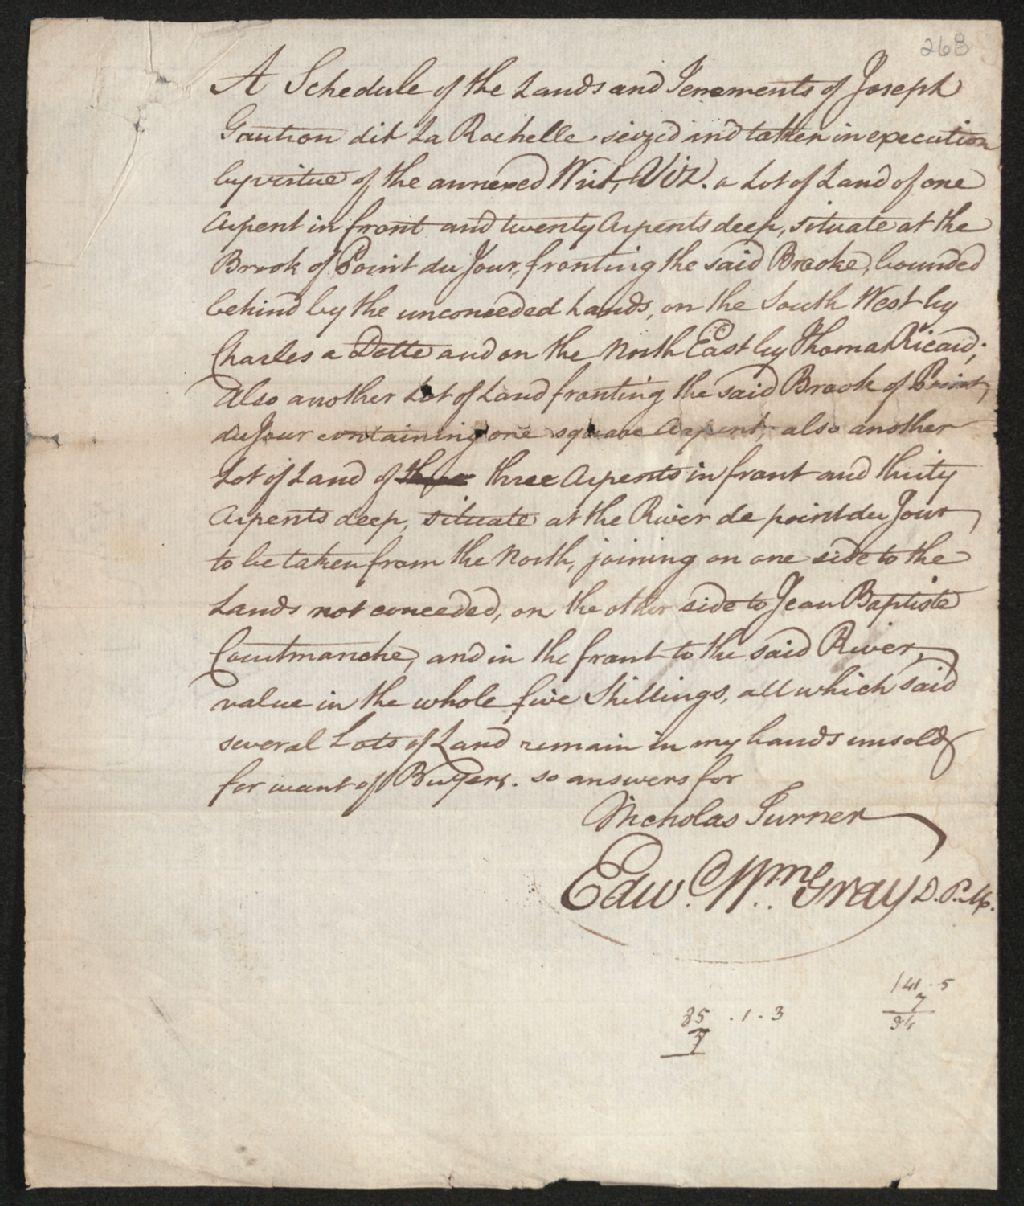 268
A Schedule of the Lands and Tenements of Joseph
Gaution dit La Rochelle seized and taken in execution
by virtue of the annexed Writ, Viz. a Lot of Land of one
Arpent in front and twenty Arpents deep, situate at the
Brook of Point du Jour, fronting the said Brooke, bounded
behind by the unconceeded Lands, on the South West by
Charles a Dette and on the North East by Thomas Ricard;
Also another Lot of Land fronting the said Brook of Point
du Jour containing one square Arpent, also another
Lot of Land of three Arpents in front and thirty
Arpents deep, situate at the River de point du Jour
to be taken from the North, joining on one side to the
Lands not conceeded, on the other side to Jean Baptiste
Coutmanche, and in the front to the said River,
value in the whole five Shillings, all which said
several Lots of Land remain in my hands unsold
for want of Buyers. so answers for
Nicholas Turner
Edwd. Wm. Gray D. P. M.
141 . 5
7
85 . 1 . 3